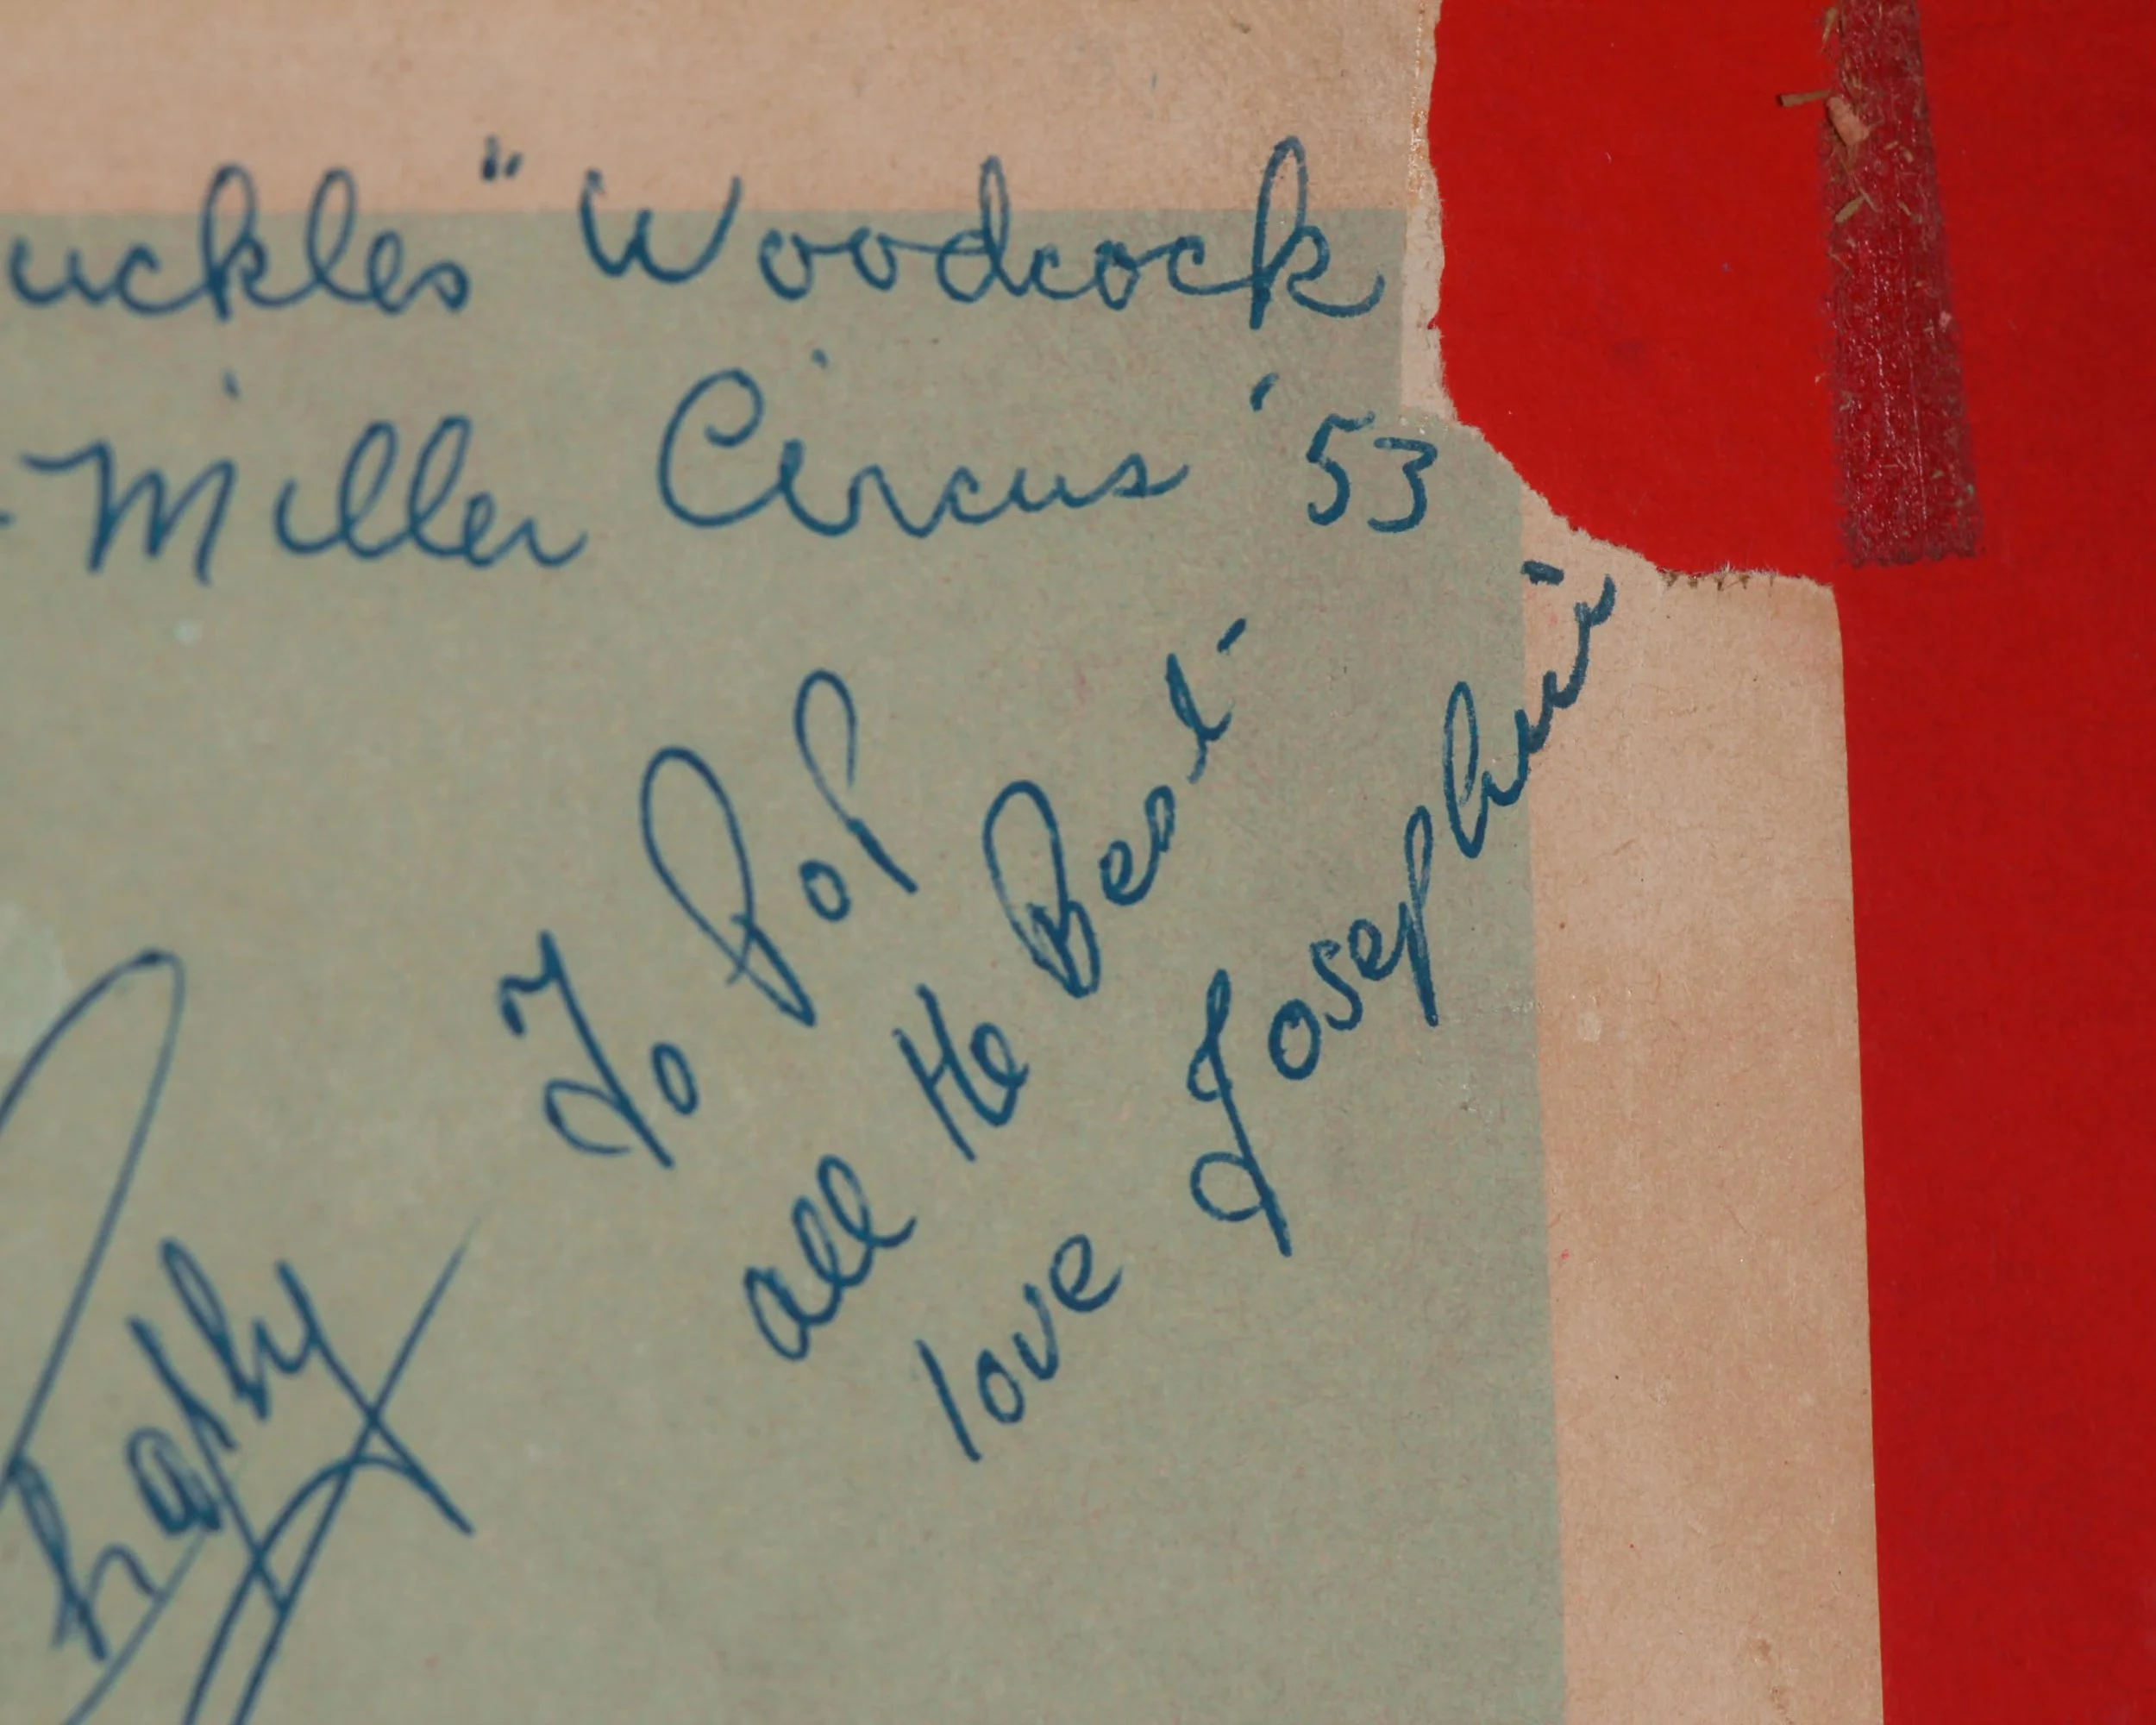 uckles" Woodcock
-Miller Circus '53
To Pop
all the Best
love Josephine